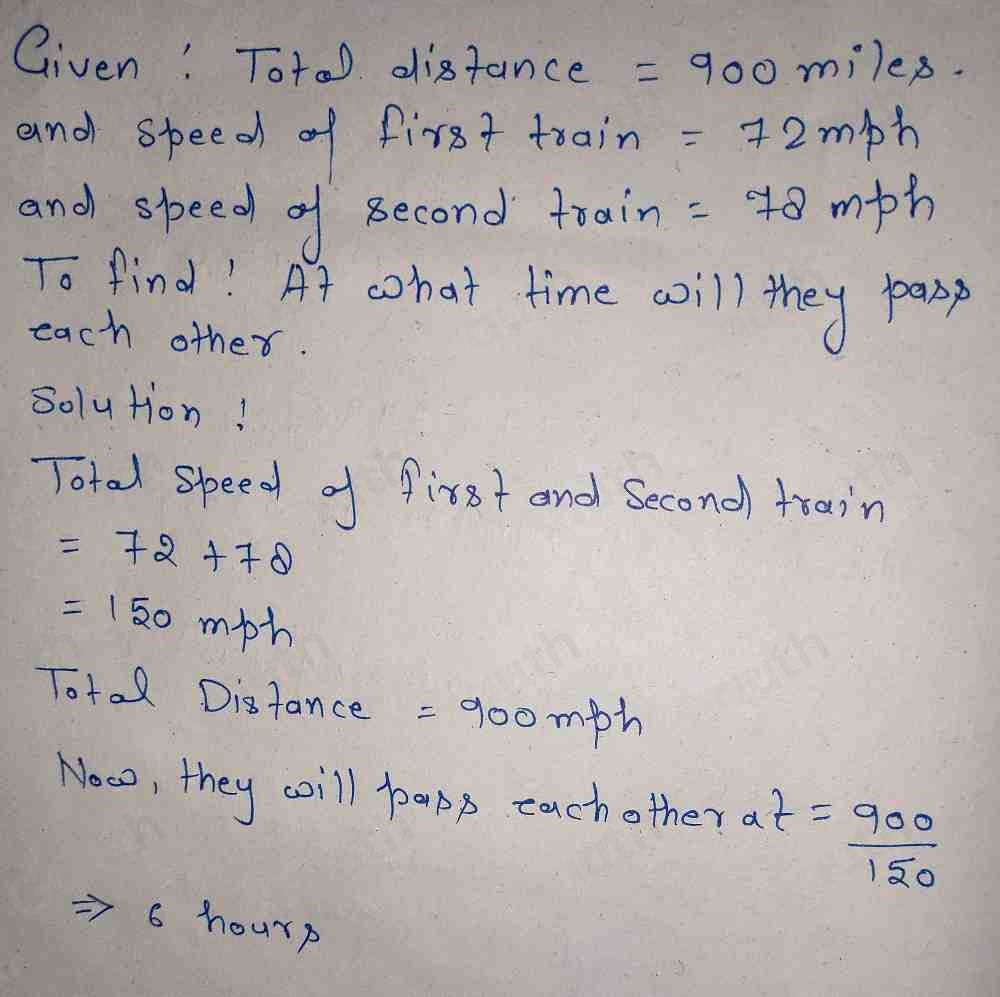 Given : Total distance = 900 miles.
and speed of first train = 72 mph
and speed of second train = 78 mph
To find : At what time will they pass
each other.
Solution :
Total Speed of first and Second train
= 72 + 78
= 150 mph
Total Distance = 900 mph
Now, they will pass each other at = 900
150
⇒ 6 hours